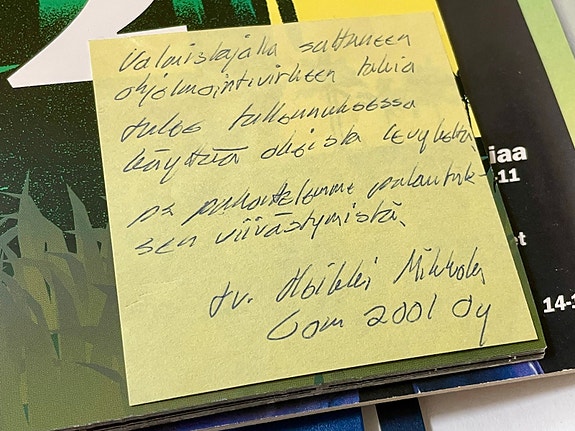 2
Valmistajalla sattuneen
ohjelmointivirheen takia
tulee tallennuksessa
käyttää oheista levykettä.
ps pahoittelemme palautuk-
sen viivästymistä.
tv. Heikki Mikkola
Com 2001 Oy
iaa
-11
et
14-1